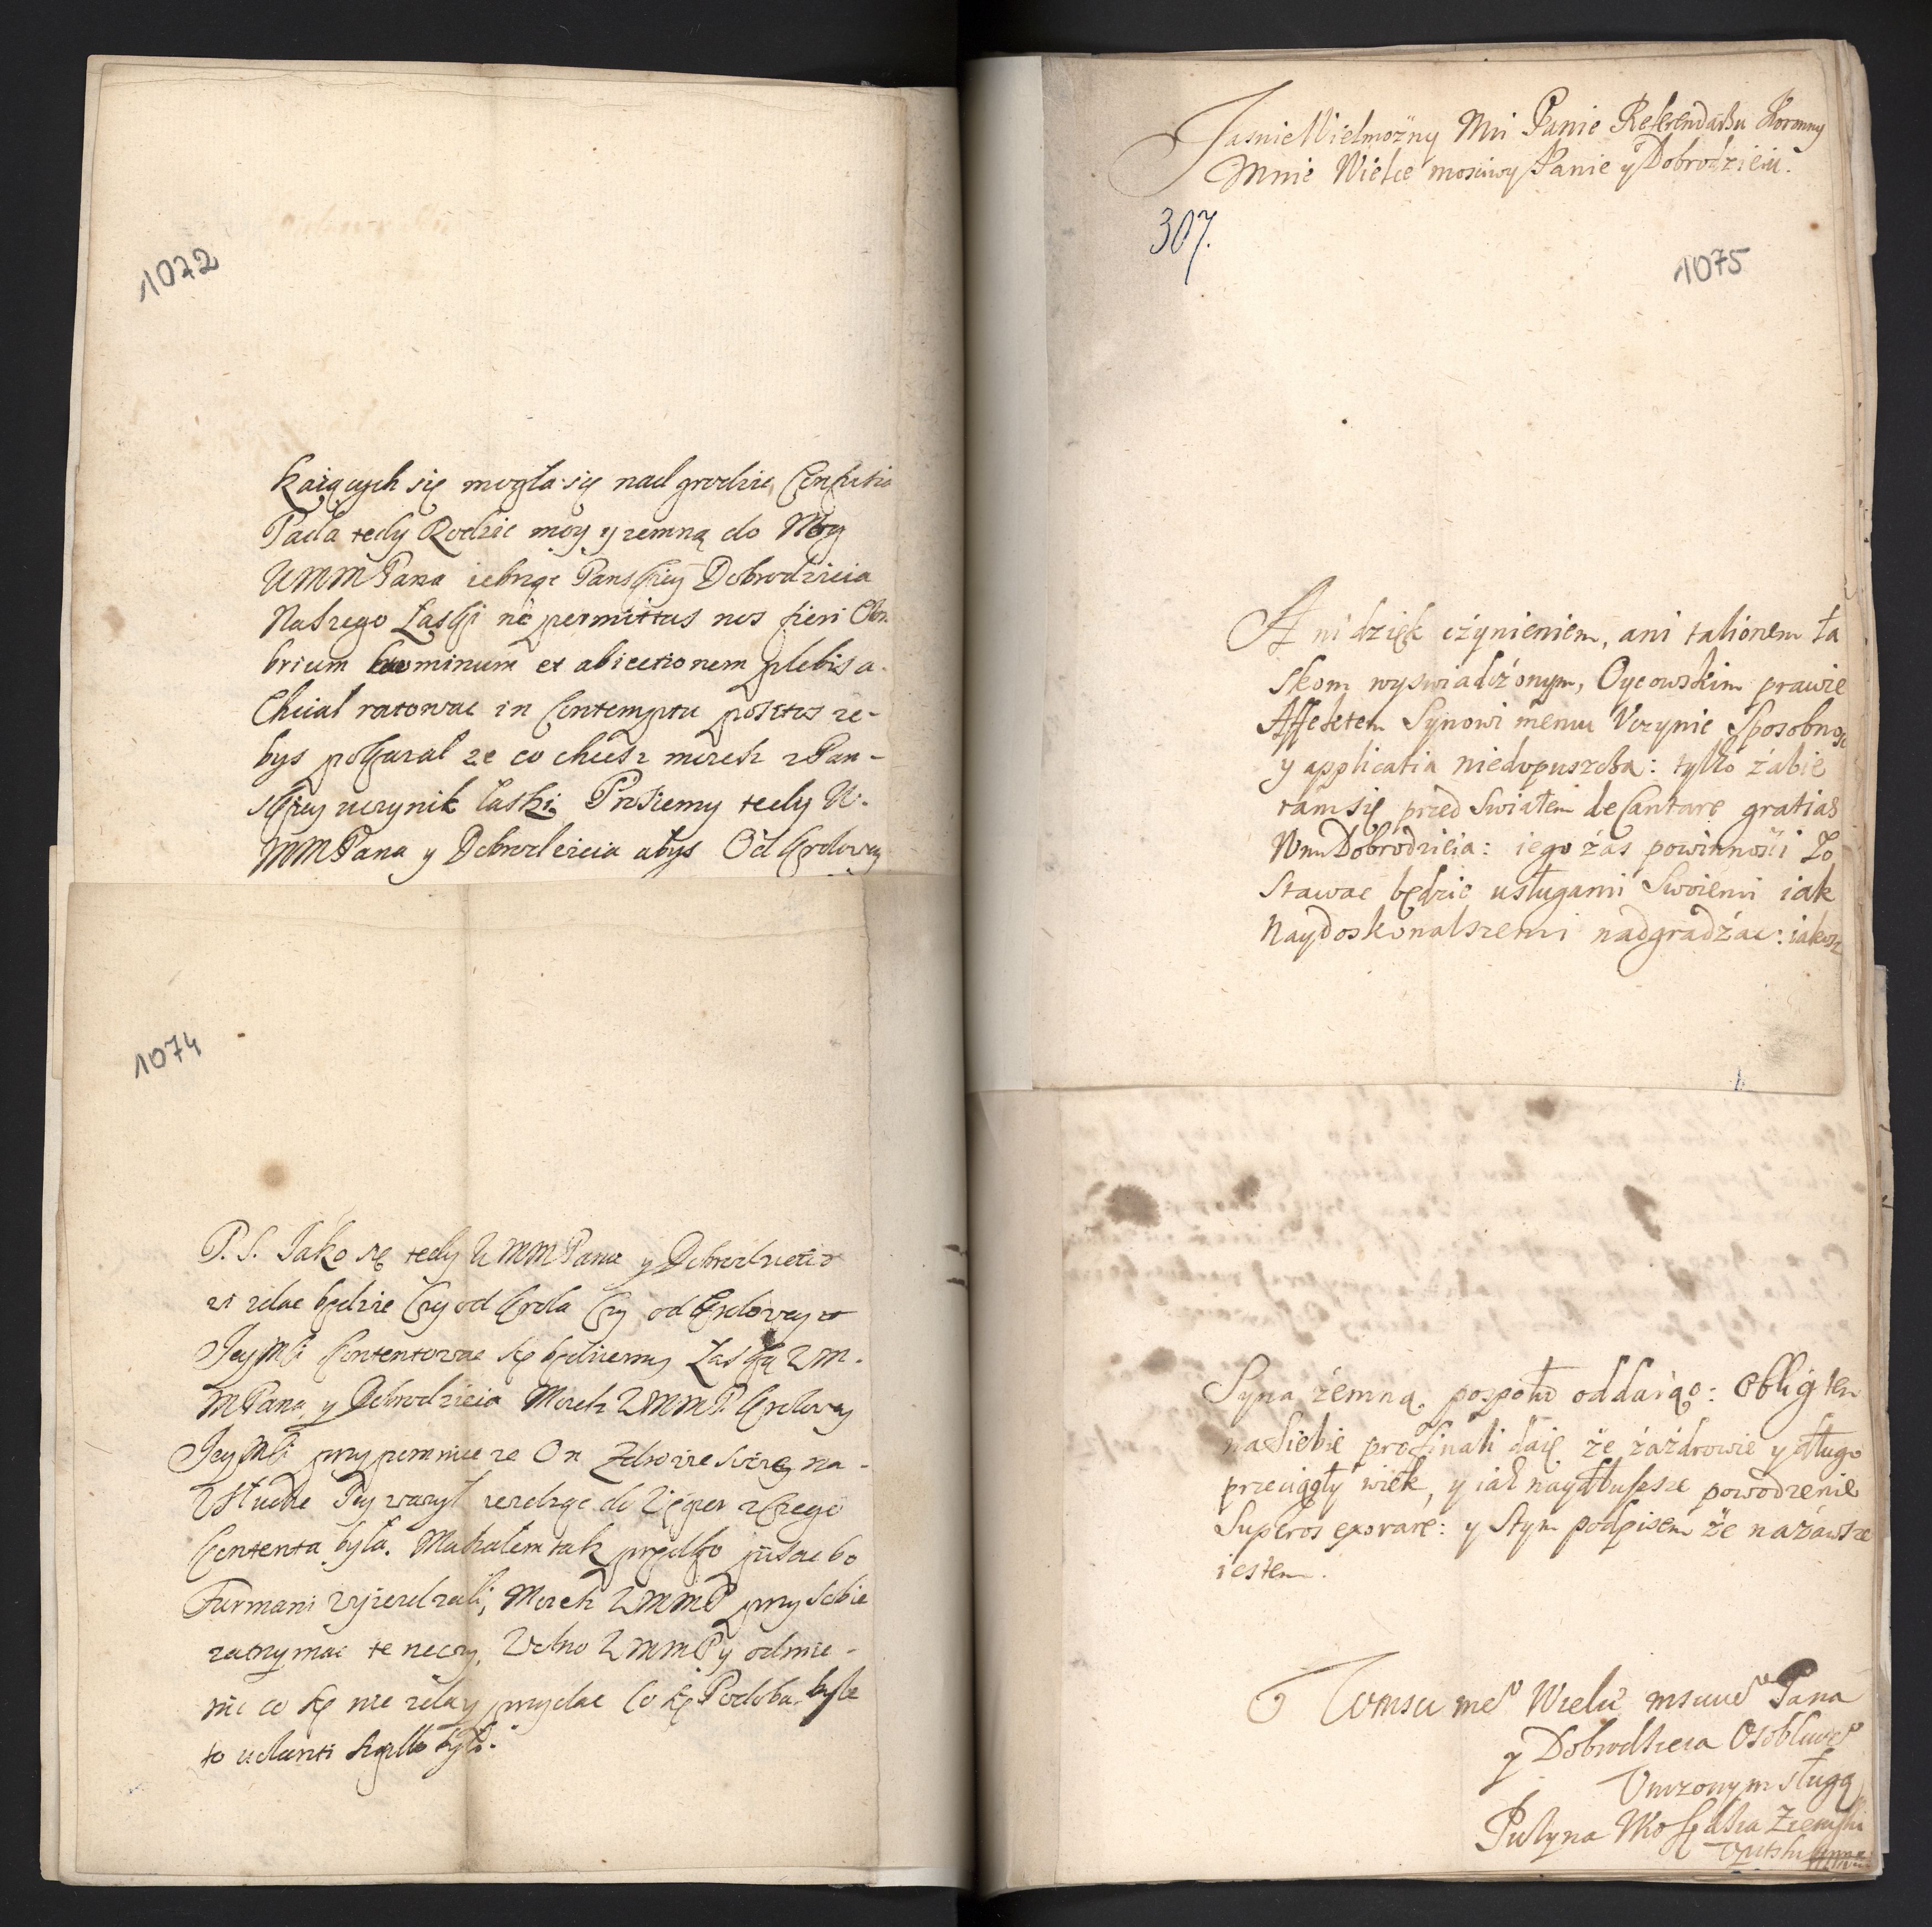 1072
kaiących się mogła się nadgrodzić
Pada tedy Rodzic moy y zemną do Nog
UMMPana zebrząc Panskiey Dobrodzieia
Naszego Łaski ne permittas nos fieri Obro
brium hominum et abiectionem plebis a
Chciał ratowac in Contemptu positos ze-
bys pokazal ze co chcesz mozesz z Pan-
skiey uczynic laski Prosiemy tedy U.
MMPana y Dobrodzieia abys Od Krolowey
1074
P.S. Jako się tedy UMMPana y Dobrodzieia
zdac będzie Czy od Krola Czy od Krolowey
JeyMći Contentowac się będziemy Łaską UM.
MPana y Dobrodzieia Mozesz UMMP. Krolowey
JeyMći przypomniec ze On Zdrowie swoie na-
Usłudze Jey wazył iezdząc do Węgier z Czego
Contenta była. Musiałem tak prędko pisac bo
Furmani wyiezdzali, Mozesz UMMP przy sobie
zatrzymac te rzeczy, Wolno UMMP y odmie-
nic co się nie zda y przydac Co się Podoba byle
to
307.
1075
JasnieWielmożny Mći Panie Referendarzu Koronny
Mnie Wielce mosciwy Panie y Dobrodzieiu.
Ani dzięk czynieniem, ani talionem ła
skom wyswiadczonym, Oycowskim prawie
Affektem Synowi memu Uczynic Sposobnosc
y applicatia niedopuszcza: tylko zabie
ram się przed Swiatem deCantare gratias
Wm Dobrodzieia: iego zas powinności Zo
Stawac będzie usługami Swoiemi iak
Naydoskonalszemi nadgradzac: iakosz
Syna zemną pospołu oddaiąc: Oblig ten
nasiebie profinali daię że zazdrowie y długo
przeciągły wiek, y iak naydłuższe powodzenie
Superos exorare: y Stym podpisem że nazawsze
iestem.
Wmsu meo Wielce msciweo Pana
y Dobrodzieia Osobliweo
Unizonym sługą
Puzyna